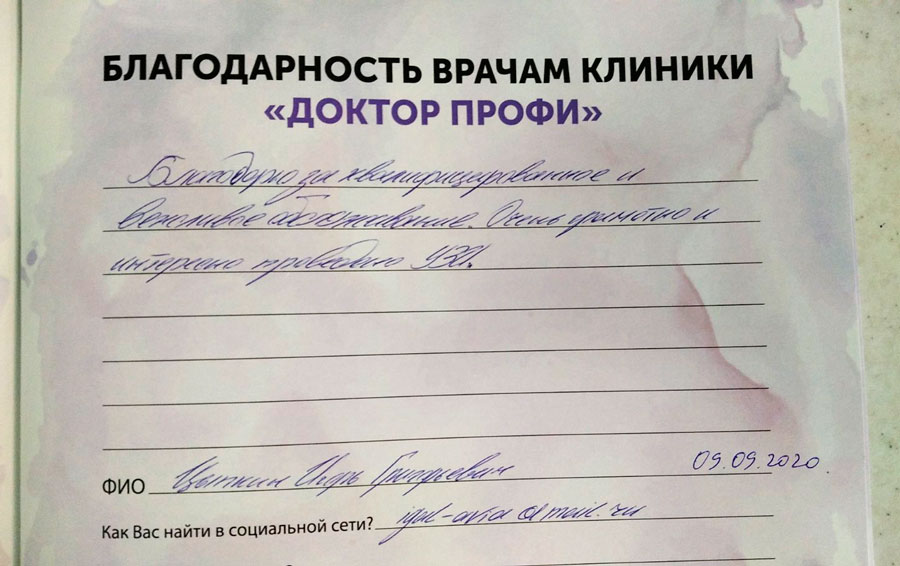 БЛАГОДАРНОСТЬ ВРАЧАМ КЛИНИКИ
«ДОКТОР ПРОФИ»
Благодарю за квалифицированное и
вежливое обслуживание. Очень грамотно и
интересно проведено УЗИ.
ФИО Цыткин Игорь Григорьевич 09.09.2020
Как Вас найти в социальной сети? igor-avia@mail.ru